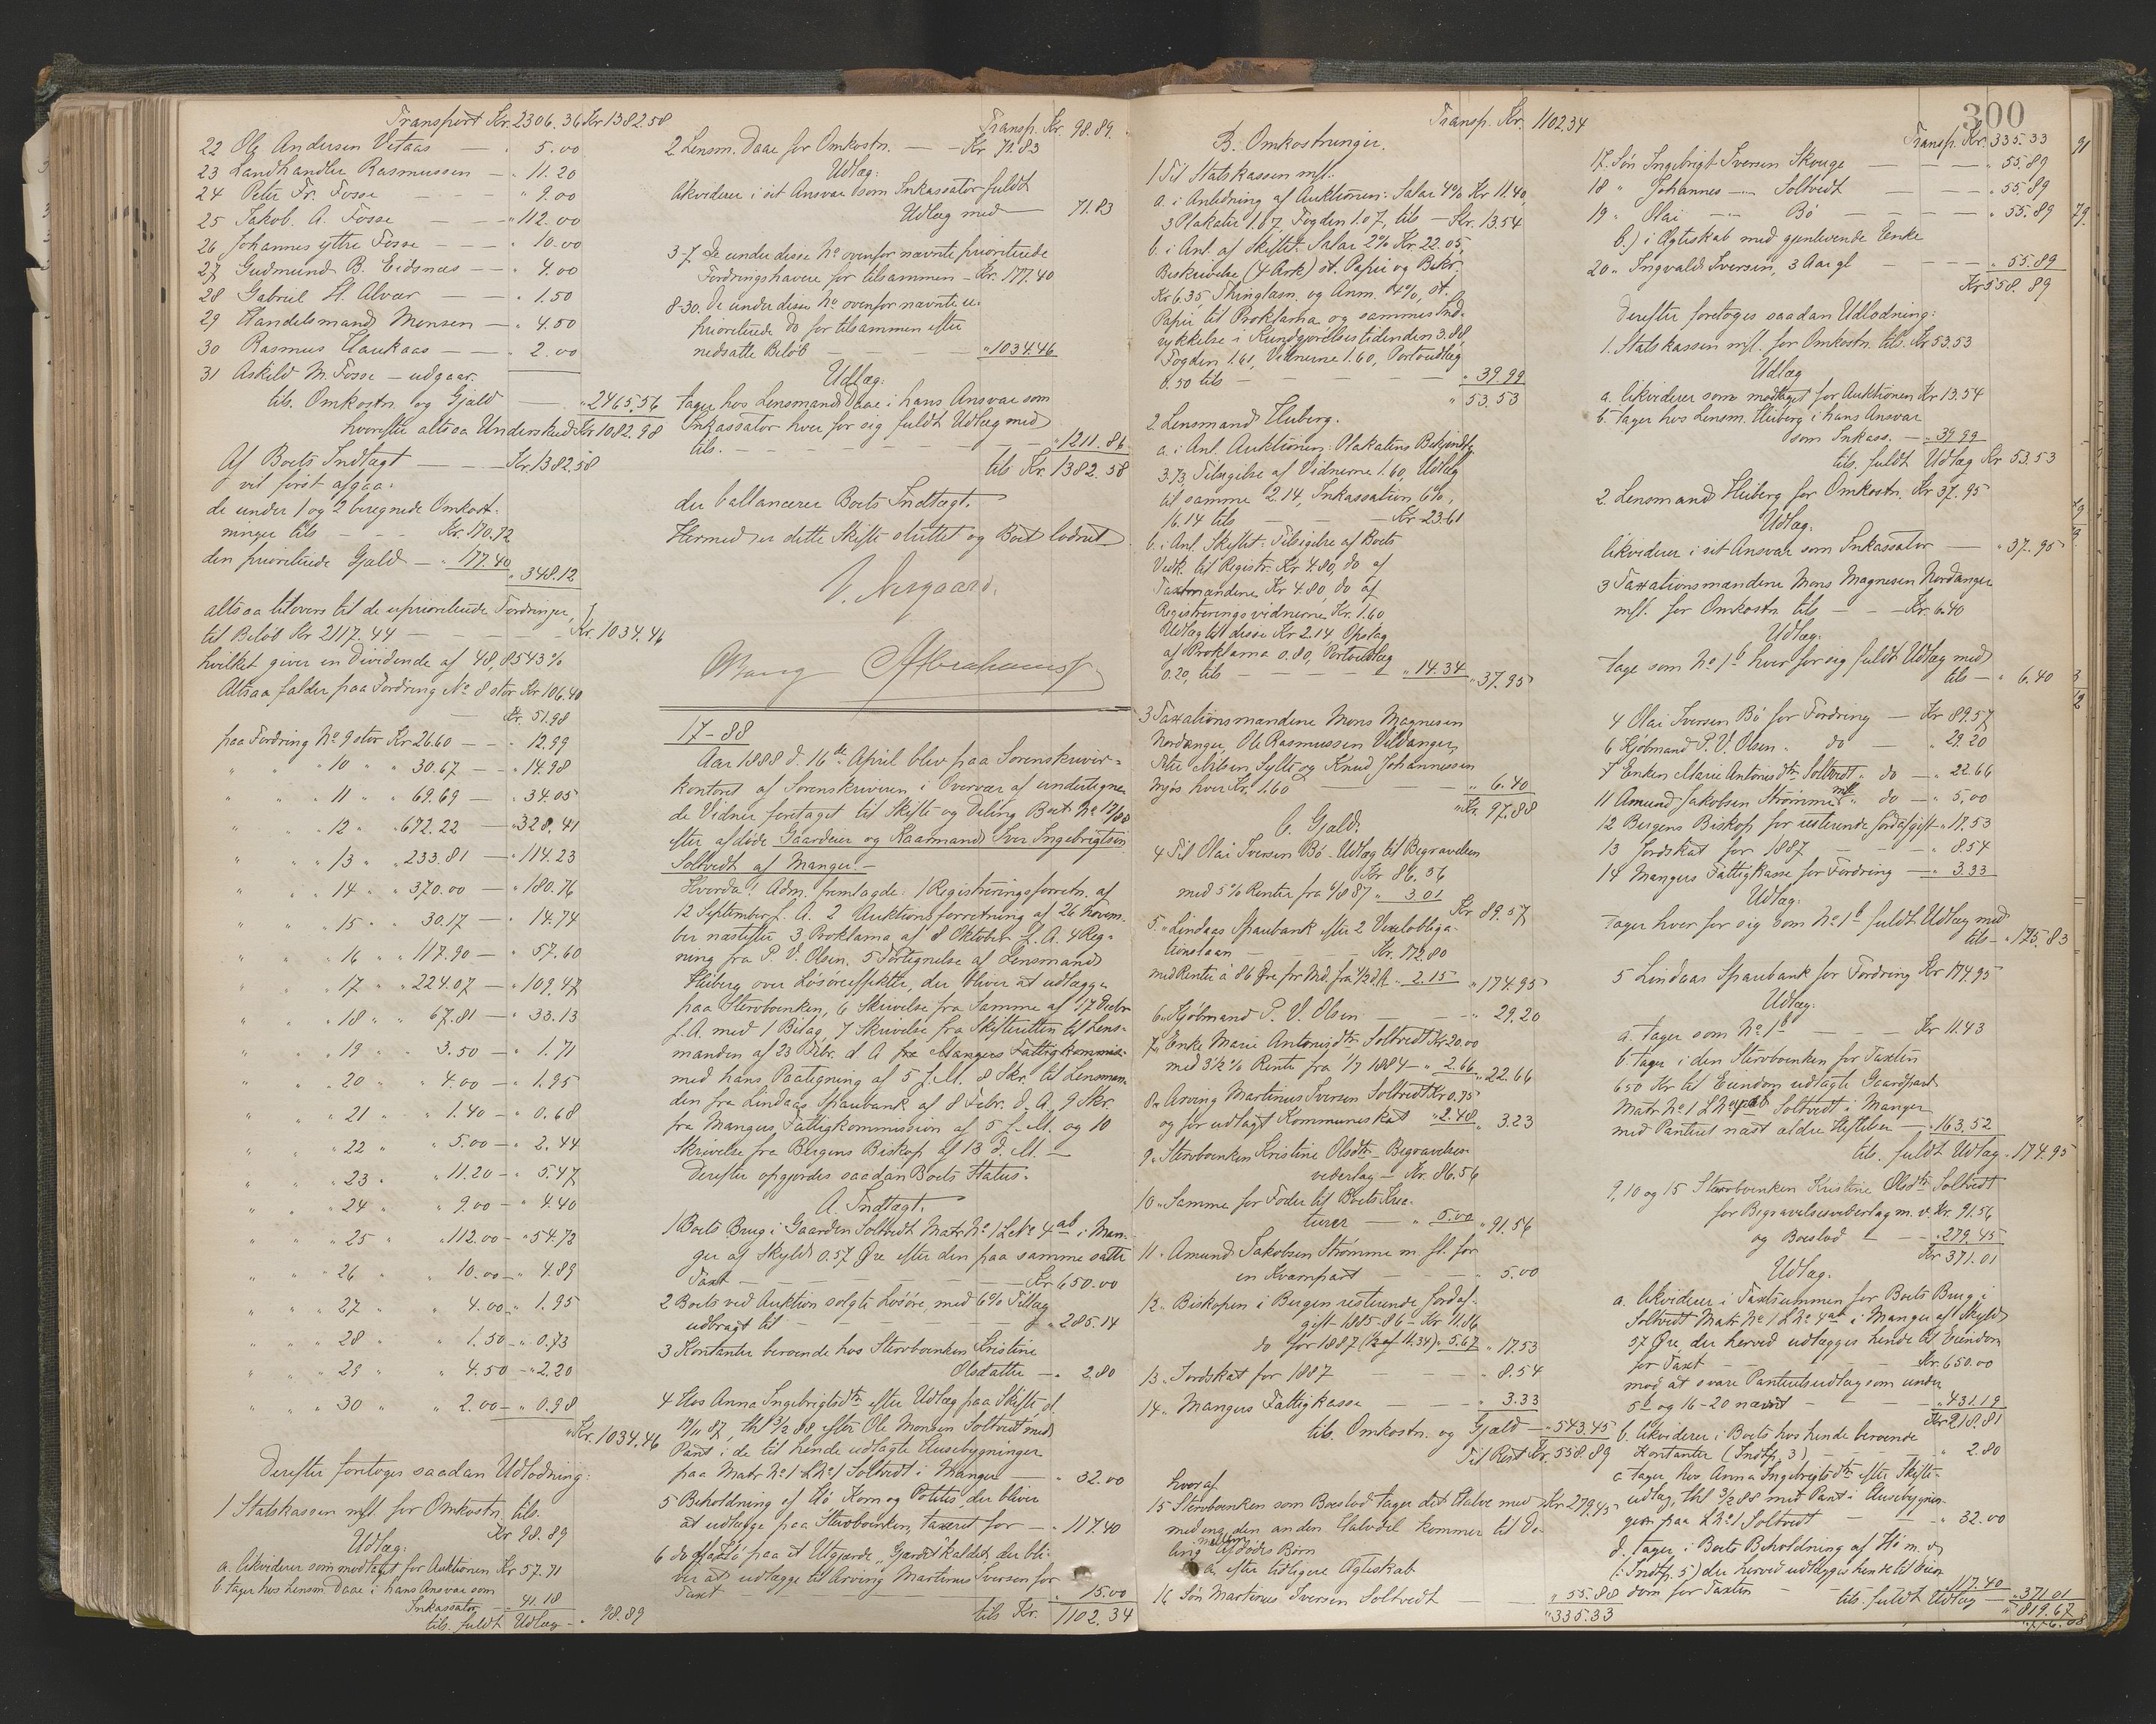 Transport Kr. 2306.36 Kr 1382.58
22 Ole Andersen Vetaas — " 5.00
23 Landhandler Rasmussen — " 11.20
24 Peter Fr. Fosse — " 9.00
25 Jakob A. Fosse — " 112.00
26 Johannes yttre Fosse — " 10.00
27 Gudmund B. Eidsnæs — " 4.00
28 Gabriel H. Alvær — " 1.50
29 Handelsmand Monsen — " 4.50
30 Rasmus Haukaas — " 2.00
31 Askeld M. Fosse — udgaar.
tils. Omkostn. og Gjæld — " 2465.56
hvorefter altsaa Underskud Kr 1082.98
Af Boets Indtægt — Kr. 1382.58
vil først afgaa:
de under 1 og 2 beregnede Omkost-
ninger tils — Kr. 170.72
den prioriterede Gjæld — " 177.40
" 348.12
altsaa tilovers til de uprioriterede Fordringer,
til Beløb Kr 2117.44 — Kr. 1034.46
hvilket giver en Dividende af 48,8543 %
Altsaa falder paa Fordring No 8 stor Kr 106.40
Kr. 51.98
paa Fordring No 9 stor Kr 26.60 — " 12.99
" " " 10 " " 30.67 — " 14.98
" " " 11 " " 69.69 — " 34.05
" " " 12 " " 672.22 — " 328.41
" " " 13 " " 233.81 — " 114.23
" " " 14 " " 370.00 — " 180.76
" " " 15 " " 30.17 — " 14.74
" " " 16 " " 117.90 — " 57.60
" " " 17 " " 224.07 — " 109.47
" " " 18 " " 67.81 — " 33.13
" " " 19 " " 3.50 — " 1.71
" " " 20 " " 4.00 — " 1.95
" " " 21 " " 1.40 — " 0.68
" " " 22 " " 5.00 — " 2.44
" " " 23 " " 11.20 — " 5.47
" " " 24 " " 9.00 — " 4.40
" " " 25 " " 112.00 — " 54.72
" " " 26 " " 10.00 — " 4.89
" " " 27 " " 4.00 — " 1.95
" " " 28 " " 1.50 — " 0.73
" " " 29 " " 4.50 — " 2.20
" " " 30 " " 2.00 — " 0.98
Kr. 1034.46
Derefter foretoges saadan Udlodning:
1 Statskassen mfl. for Omkostn. tils.
Kr 98.89
Udlæg:
a. likviderer som modtaget for Auktionen Kr 57.71
b. tager hos Lensm. Daae i hans Ansvar som
Inkassator — " 41.18
tils. fuldt Udlæg — " 98.89
Transp. Kr. 98.89
2 Lensm. Daae for Omkostn. — Kr 71.83
Udlæg:
likviderer i sit Ansvar som Inkassator fuldt
Udlæg med — 71.83
3-7 De under disse No ovenfor nævnte prioriterede
Fordringshavere for tilsammen — Kr. 177.40
8-30. De under disse No ovenfor nævnte u-
prioriterede do for tilsammen efter
nedsatte Beløb — " 1034.46
Udlæg:
tager hos Lensmand Daae i hans Ansvar som
Inkassator hver for sig fuldt Udlæg med
tils. — " 1211.86
tils Kr. 1382.58
der ballancerer Boets Indtægt.
Hermed er dette Skifte sluttet og Boet lodnet
V. Nergaard.
Abrahamsen
17-88
Aar 1888 d. 16de April blev paa Sorenskriver-
kontoret af Sorenskriveren i Overvær af undertegne-
de Vidner foretaget til Skifte og Deling Boet No 17/88
efter afdøde Gaardeier og Kaarmand Iver Ingebrigtsen
Soltvedt af Manger. —
Hvorda: Adm. fremlagde: 1 Registreringsforretn. af
12 September f. A. 2 Auktionsforretning af 26 Novem-
ber næstefter 3 Proklama af 8 Oktober f. A. 4 Reg-
ning fra P. V. Olsen. 5 Fortegnelse af Lensmand
Heiberg over Løsøreeffekter, der bliver at udlægge
paa Stervboenken, 6 Skrivelse fra Samme af 17 Decbr
f. A. med 1 Bilag 7 Skrivelse fra Skifteretten til Lens-
manden af 23 Febr. d. A fra Mangers Fattigkommis:
med hans Paategning af 5 f. M. 8 Skr. til Lensman-
den fra Lindaas Sparebank af 8 Febr. d. A., 9 Skr.
fra Mangers Fattigkommission af 5 f. M. og 10
Skrivelse fra Bergens Biskop af 13 d. M. —
Derefter opgjordes saadan Boets Status:
A. Indtægt.
1 Boets Brug i Gaarden Soltvedt Matr. No 1 L. No 4ab i Man-
ger af Skyld 0.57 Øre efter den paa samme satte
Taxt — Kr 650.00
2 Boets ved Auktion solgte Løsøre, med 6% Tillæg
udbragt til — " 285.14
3 Kontanter beroende hos Stervboenken Kristine
Olsdatter — " 2.80
4 Hos Anna Ingebrigtsdtr efter Udlæg paa Skifte d.
12/11 87, thl 3/2 88, efter Ole Monsen Soltvedt med
Pant i de til hende udlagte Husebygninger
paa Matr No 1 L No 1 Soltvedt i Manger — " 32.00
5 Beholdning af Hø Korn og Poteter, der bliver
at udlægge paa Stervboenken, taxeret for — " 117.40
6 do paa et Utgjærde „Gjærdet" kaldet, der bli-
ver at udlægge til Arving Martinus Iversen for
Taxt — " 15.00
tils Kr. 1102.34
Transp. Kr. 1102.34
B. Omkostninger.
1 Til Statskassen mfl.
a. i Anledning af Auktionen: Salær 4% Kr 11.40,
3 Plakater 1.07, Fogden 1.07, tils — Kr. 13.54
b. i Anl. af Skiftet: Salær 2% Kr 22.05,
Beskrivelse (4 Ark) st. Papir og Bekr.
Kr 6.35, Thinglæsn. og Anm. 4%, st.
Papir til Proklama og sammes Ind-
rykkelse i Kundgjørelsestidenden 3.88,
Fogden 1.61, Vidnerne 1.60, Portoudlæg
0.50 tils — " 39.99
" 53.53
2 Lensmand Heiberg.
a. i Anl. Auktionen: Plakatens Bekjendtg.
3.73, Tilsigelse af Vidnerne 1.60, Udlæg
til samme 2.14, Inkassation 6%,
16.14 tils — Kr 23.61
b. i Anl. Skiftet: Tilsigelse af Boets
Vedk. til Registr. Kr 4.80, do af
Taxtmændene Kr 4.80, do af
Registreringsvidnerne Kr. 1.60
Udlæg til disse Kr 2.14. Opslag
af Proklama 0.80, Portoudlæg
0.20, tils — " 14.34 " 37.95
3 Taxationsmændene Mons Magnesen
Nordanger, Ole Rasmussen Vildanger,
Peter Nilsen Sylte og Knud Johannessen
Mjøs hver Kr. 1.60 — " 6.40
Kr. 97.88
C. Gjæld.
4 Til Olai Iversen Bø - Udlæg til Begravelsen
Kr 86.56
med 5% Renter fra 6/8 87 " 3.01
Kr 89.57
5. " Lindaas Sparebank efter 2 Vexelobliga-
tionslaan — Kr. 172.80
med Renter à 86 Øre pr Md. fra 1/2 d. A " 2.15 " 174.95
6 " Kjøbmand P. V. Olsen — " 29.20
7 " Enke Marie Antonisdtr Soltvedt Kr. 20.00
med 3½ % Rente fra 1/7 1884 — " 2.66 " 22.66
8 " Arving Martinus Iversen Soltvedt Kr 0.75
og for udlagt Kommuneskat " 2.48 " 3.23
9 " Stervboenken Kristine Olsdtr Begravelses-
vederlag — Kr. 86.56
10 " Samme for Foder til Boets Krea-
turer — " 5.00 " 91.56
11 " Amund Jakobsen Strømme m. fl. for
en Kværnpart — " 5.00
12 " Biskopen i Bergen resterende Jordaf-
gift 1885-86 — Kr 11.86
do for 1887 (½ af 11.34) " 5.67 " 17.53
13 " Jordskat for 1887 — " 8.54
14 " Mangers Fattigkasse — " 3.33
tils. Omkostn. og Gjæld — " 543.45
Til Rest Kr. 558.89
hvoraf
15 Stervboenken som Boeslod tager det Halve med Kr 279.45
medens den anden Halvdel kommer til De-
ling mellem Afdødes Børn
a, efter tidligere Ægteskab
16 Søn Martinus Iversen Soltvedt — " 55.88
" 335.33
300
Transp. Kr. 335.33
17. Søn Ingebrigt Iversen Skouge — " 55.89
18 " Johannes — Soltvedt — " 55.89
19 " Olai — Bø — " 55.89
b.) i Ægteskab med gjenlevende Enke
20 " Ingvald Iversen, 3 Aar gl — " 55.89
Kr 558.89
Derefter foretoges saadan Udlodning:
1. Statskassen mfl. for Omkostn. tils. Kr 53.53
Udlæg
a. likviderer som modtaget for Auktionen Kr 13.54
b. tager hos Lensm. Heiberg i hans Ansvar
som Inkass. — " 39.99
tils. fuldt Udlæg Kr 53.53
2. Lensmand Heiberg for Omkostn. Kr 37.95
Udlæg:
likviderer i sit Ansvar som Inkassator — " 37.95
3 Taxationsmændene Mons Magnesen Nordanger
mfl. for Omkostn. tils — Kr. 6.40
Udlæg:
tage som No 1b hver for sig fuldt Udlæg med
tils — " 6.40
4 Olai Iversen Bø for Fordring — Kr 89.57
6 Kjøbmand P. V. Olsen " do — " 29.20
7 Enken Marie Antonisdtr Soltvedt " do — " 22.66
11 Amund Jakobsen Strømme mfl " do — " 5.00
12 Bergens Biskop for resterende Jordafgift — " 17.53
13 Jordskat for 1887 — " 8.54
14 Mangers Fattigkasse for Fordring — " 3.33
Udlæg:
tager hver for sig som No 1b fuldt Udlæg med
tils — " 175.83
5 Lindaas Sparebank for Fordring Kr 174.95
Udlæg:
a. tager som No 1b — Kr 11.43
b. tager i den Stervboenken for Taxten
650 Kr til Eiendom udlagte Gaardpart
Matr No 1 L No 4ab Soltvedt i Manger
med Panteret næst ældre Heftelser — " 163.52
tils. fuldt Udlæg " 174.95
9, 10 og 15 Stervboenken Kristine Olsdtr Soltvedt
for Begravelsesvederlag m. v. Kr. 91.56
og Boeslod — " 279.45
Kr 371.01
Udlæg:
a. likviderer i Taxtsummen for Boets Brug i
Soltvedt Matr No 1 L No 4ab i Manger af Skyld
57 Øre der herved udlægges hende til Eiendom
for Taxt — Kr. 650.00
mod at svare Panteudlæg som under
5b og 16-20 nævnt — " 431.19
Kr 218.81
b. likviderer i Boets hos hende beroende
Kontanter (Indtg. 3) — " 2.80
c tager hos Anna Ingebrigtsdtr efter Skifte-
udlæg, thl 3/2 88 med Pant i Husebygnin-
gen paa L No 1 Soltvedt — " 32.00
d. tager i Boets Beholdning af Hø m. v
(Indtg. 5) der herved udlægges hende til Eien-
dom for Taxten — 117.40
tils. fuldt Udlæg — " 371.01
" 819.67